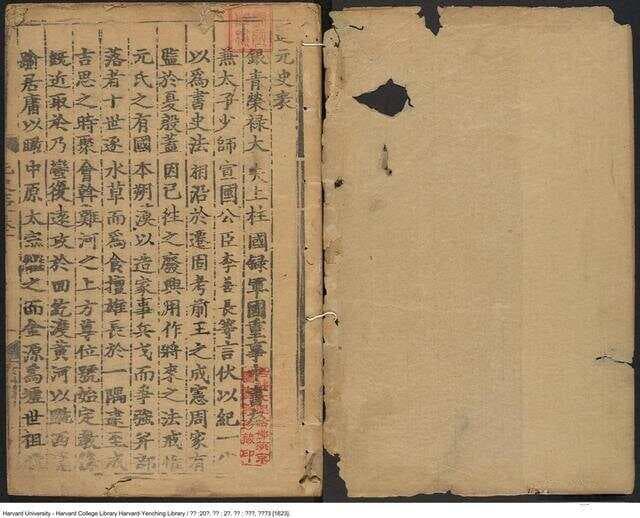 元史表
銀青榮祿大夫上柱國録軍國重事中書
兼太子少師宣國公臣李善長等言伏以紀一
以爲書史法相沿於遷固考前王之成憲周家有
監於夏殷蓋因已徃之廢興用作將來之法戒惟
元氏之有國本朔漠以造家事兵戈而爭強并部
落者十世逐水草而爲食擅雄長於一隅逮至成
吉思之時聚會斡難河之上方尊位號始定教條
既近取於乃蠻復遠攻於回紇渡黃河以蹴西
踰居庸以瞰中原太宗繼之而金源爲墟世祖
Harvard University - Harvard College Library Harvard-Yenching Library / ?? :20?. ?? : 2?. ?? : ???, ???3 [1623].